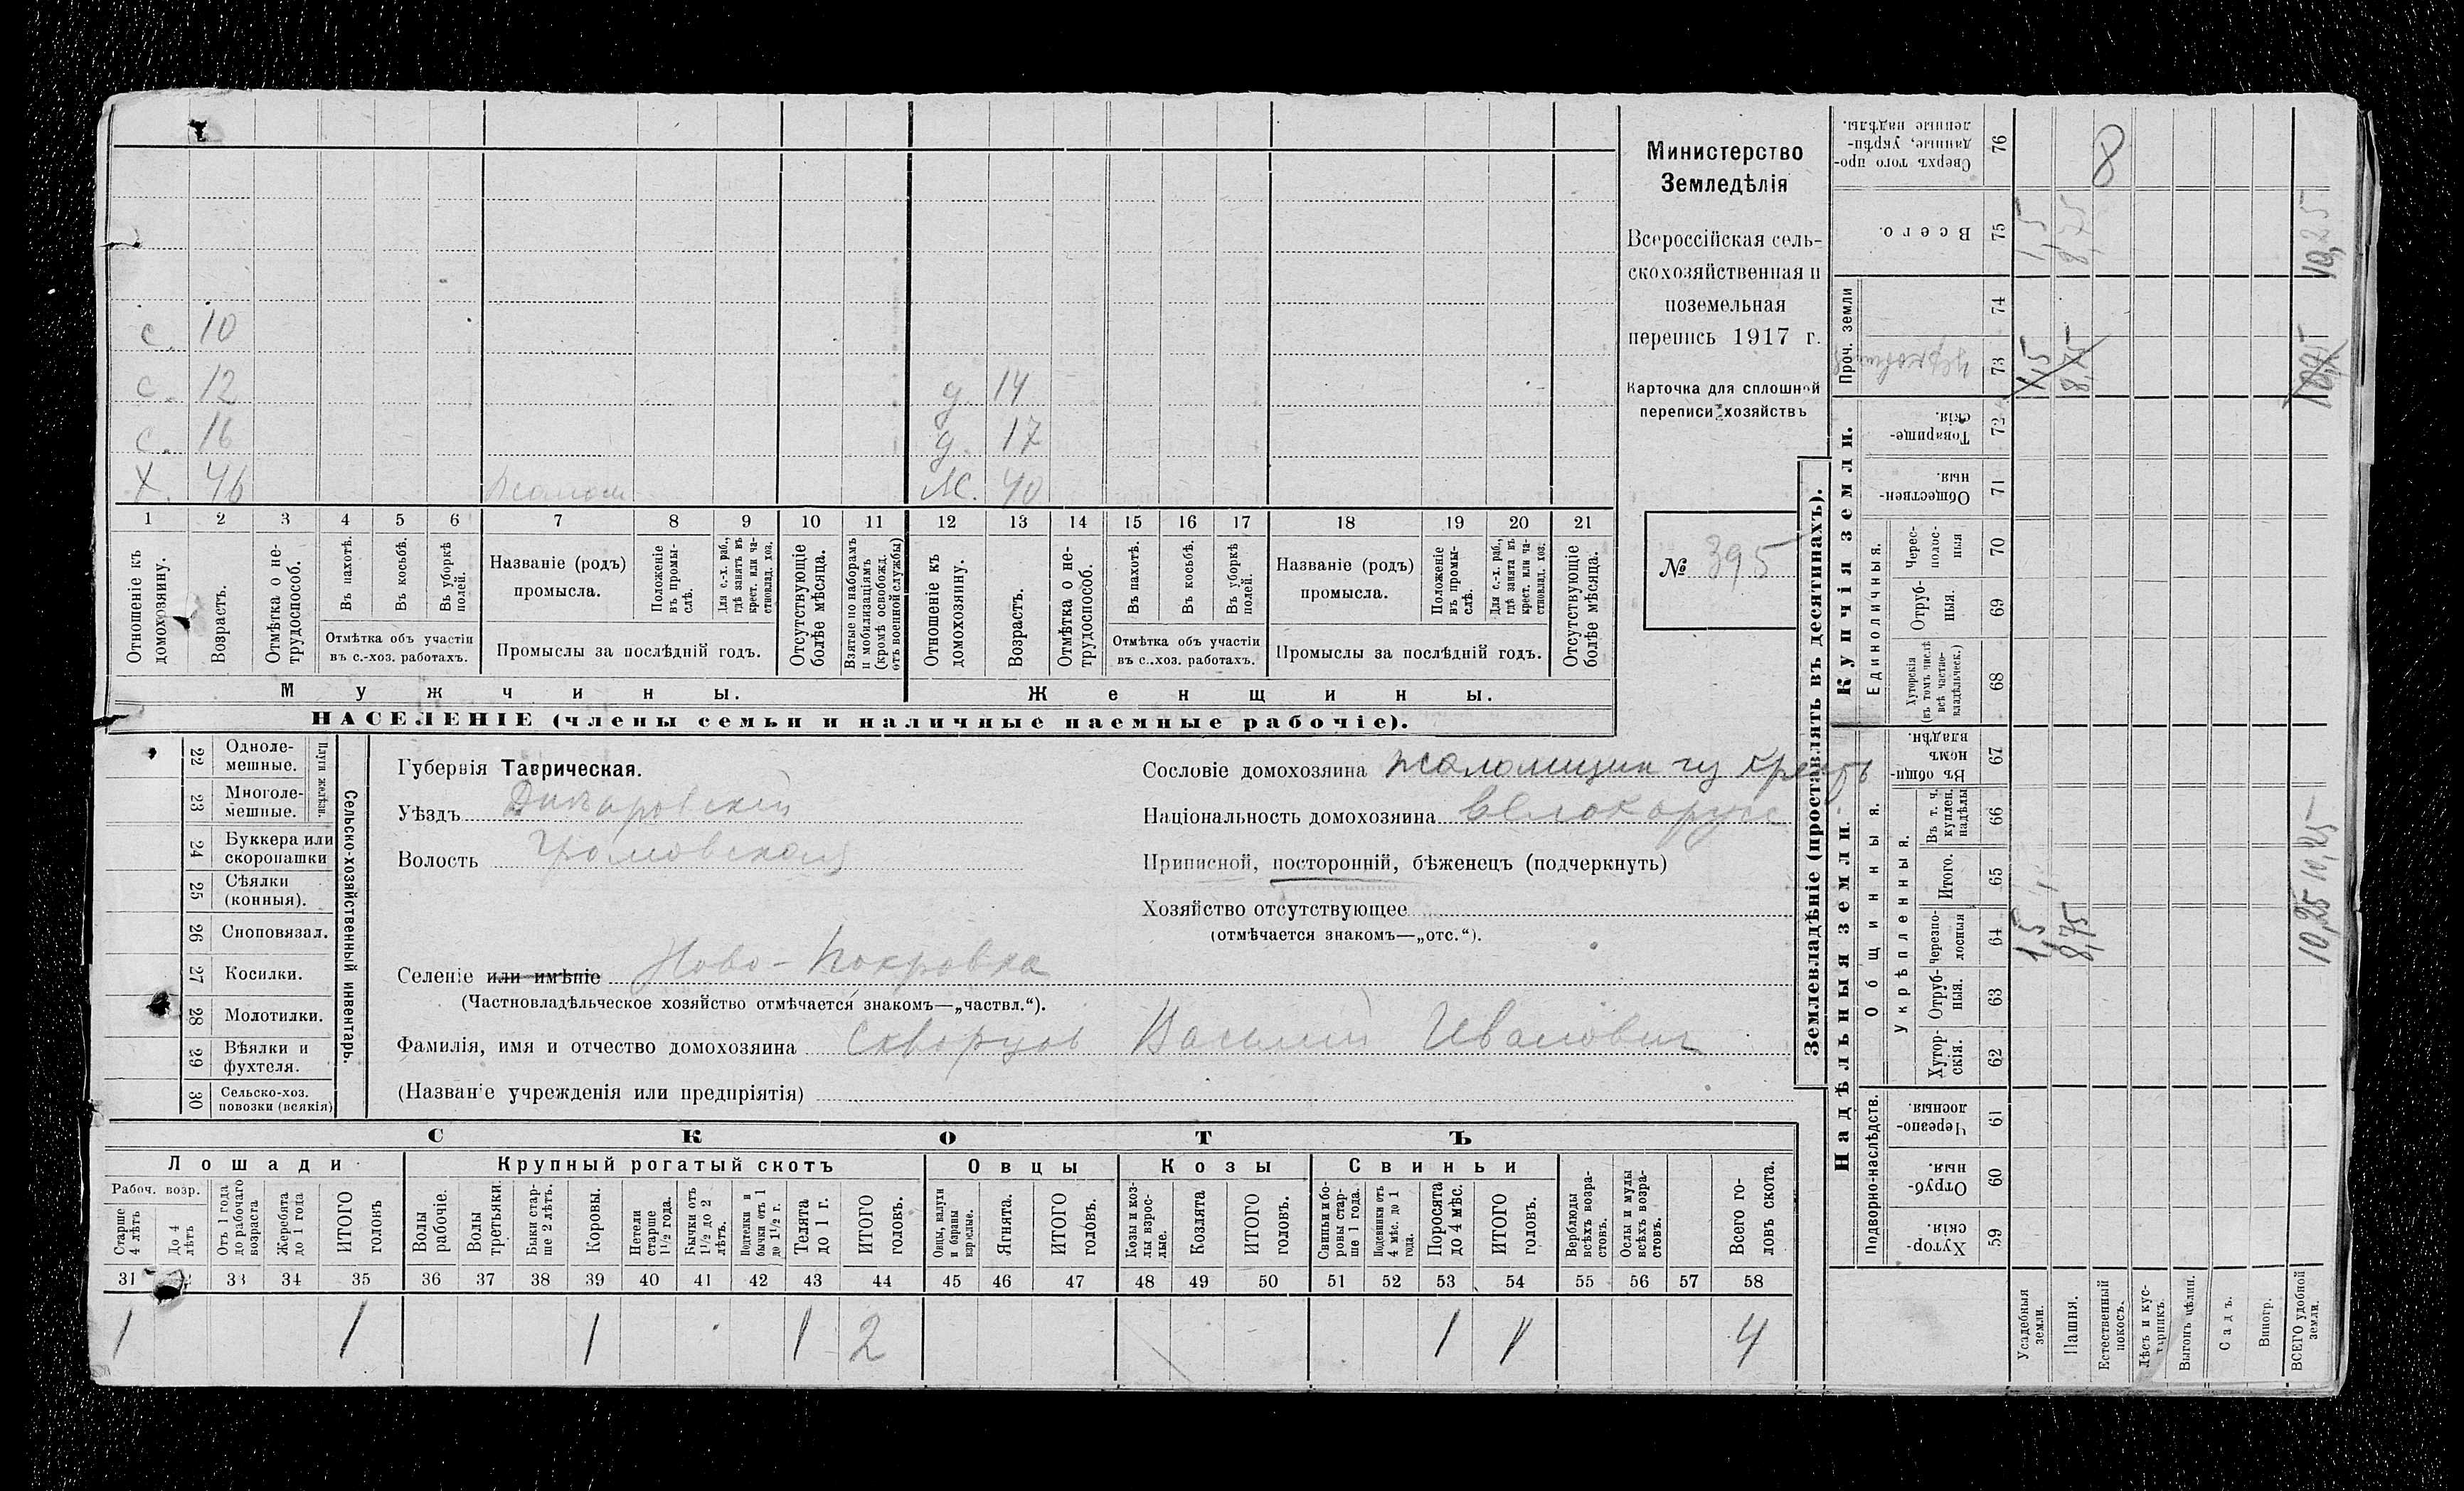 Министерство
Земледѣлія
Всероссійская сель-
скохозяйственная и
поземельная
перепись 1917 г.
Карточка для сплошной
переписи хозяйствъ
№ 395
с. 10
с. 12 д. 14
с. 16 д. 17
х. 46 ж. 40
1 2 3 4 5 6 7 8 9 10 11 12 13 14 15 16 17 18 19 20 21
Отношеніе къ домохозяину.
Возрастъ.
Отмѣтка о не-трудоспособ.
Въ пахотѣ.
Въ косьбѣ.
Въ уборкѣ полей.
Отмѣтка объ участіи
въ с.-хоз. работахъ.
Названіе (родъ)
промысла.
Положеніе въ промы-слѣ.
Для с.-х. раб., гдѣ занятъ въ крест. или ча-стновлад. хоз.
Промыслы за послѣдній годъ.
Отсутствующіе болѣе мѣсяца.
Взятые по наборамъ и мобилизаціямъ (кромѣ освобожд. отъ военной службы)
Отношеніе къ домохозяину.
Возрастъ.
Отмѣтка о не-трудоспособ.
Въ пахотѣ.
Въ косьбѣ.
Въ уборкѣ полей.
Отмѣтка объ участіи
въ с.-хоз. работахъ.
Названіе (родъ)
промысла.
Положеніе въ промы-слѣ.
Для с.-х. раб., гдѣ занята въ крест. или ча-стновлад. хоз.
Промыслы за послѣдній годъ.
Отсутствующіе болѣе мѣсяца.
Мужчины. Женщины.
НАСЕЛЕНІЕ (члены семьи и наличные наемные рабочіе).
Сельско-хозяйственный инвентарь.
Плуги желѣзн.
22 Одноле-мешные.
23 Многоле-мешные.
24 Буккера или скоропашки
25 Сѣялки (конныя).
26 Сноповязал.
27 Косилки.
28 Молотилки.
29 Вѣялки и фухтеля.
30 Сельско-хоз. повозки (всякія)
Губернія Таврическая.
Уѣздъ
Волость Громовская
Селеніе или имѣніе Ново-Покровка
(Частновладѣльческое хозяйство отмѣчается знакомъ—„частвл.“).
Фамилія, имя и отчество домохозяина Скворцов Василий Иванович
(Названіе учрежденія или предпріятія)
Сословіе домохозяина псаломщик из
Національность домохозяина великорус
Приписной, посторонній, бѣженецъ (подчеркнуть)
Хозяйство отсутствующее
(отмѣчается знакомъ—„отс.“).
СКОТЪ
Лошади Крупный рогатый скотъ Овцы Козы Свиньи
Рабоч. возр.
Старше 4 лѣтъ
До 4 лѣтъ
Отъ 1 года до рабочаго возраста
Жеребята до 1 года
ИТОГО головъ
Волы рабочіе.
Волы третьяки.
Быки стар-ше 2 лѣтъ.
Коровы.
Нетели старше 1½ года.
Бычки отъ 1½ до 2 лѣтъ.
Подтелки и бычки отъ 1 до 1½ г.
Телята до 1 г.
ИТОГО головъ.
Овцы, валухи и бараны взрослые.
Ягнята.
ИТОГО головъ.
Козы и коз-лы взрос-лые.
Козлята
ИТОГО головъ.
Свиньи и бо-ровы стар-ше 1 года.
Подсвинки отъ 4 мѣс. до 1 года.
Поросята до 4 мѣс.
ИТОГО головъ.
Верблюды всѣхъ возра-стовъ.
Ослы и мулы всѣхъ возра-стовъ.
Всего го-ловъ скота.
31 33 34 35 36 37 38 39 40 41 42 43 44 45 46 47 48 49 50 51 52 53 54 55 56 57 58
1 1 1 1 2 1 1 4
Землевладѣніе (проставлять въ десятинахъ).
Надѣльныя земли. Купчія земли.
Проч. земли
Сверхъ того про-данные, укрѣп-ленные надѣлы. 76 8
Всего. 75 1,5 8,75 10,25
74
73 1,5 8,75
Товарище-скія. 72
Обществен-ныя. 71
Единоличныя.
Черес-полос-ныя 70
Отруб-ныя. 69
Хуторскія (въ томъ числѣ всѣ частно-владѣльческ.) 68
Общинныя.
Въ общи-номъ владѣн. 67
Укрѣпленныя.
Въ т. ч. куплен. надѣлы 66
Итого. 65 10,25
Черезпо-лосныя 64 1,5 8,75 10,25
Отруб-ныя. 63
Хутор-скія. 62
Подворно-наслѣдств.
Черезпо-лосныя. 61
Отруб-ныя. 60
Хутор-скія. 59
Усадебныя земли.
Пашня.
Естественный покосъ.
Лѣсъ и кус-тарникъ.
Выгонъ цѣлин.
Садъ.
Виногр.
ВСЕГО удобной земли.